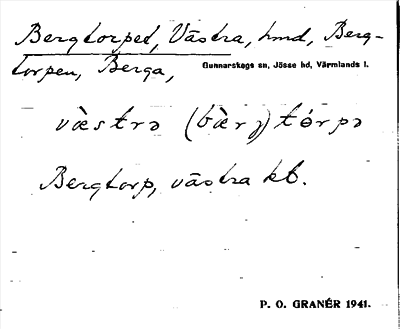 Bergtorpet, Västra, hmd, Berg-
torpen, Berga, Gunnarskogs sn, Jösse hd, Värmlands l.
væ̀strə (bær̀j)tórpə
Bergtorp, västra kt.
P. O. GRANÉR 1941.